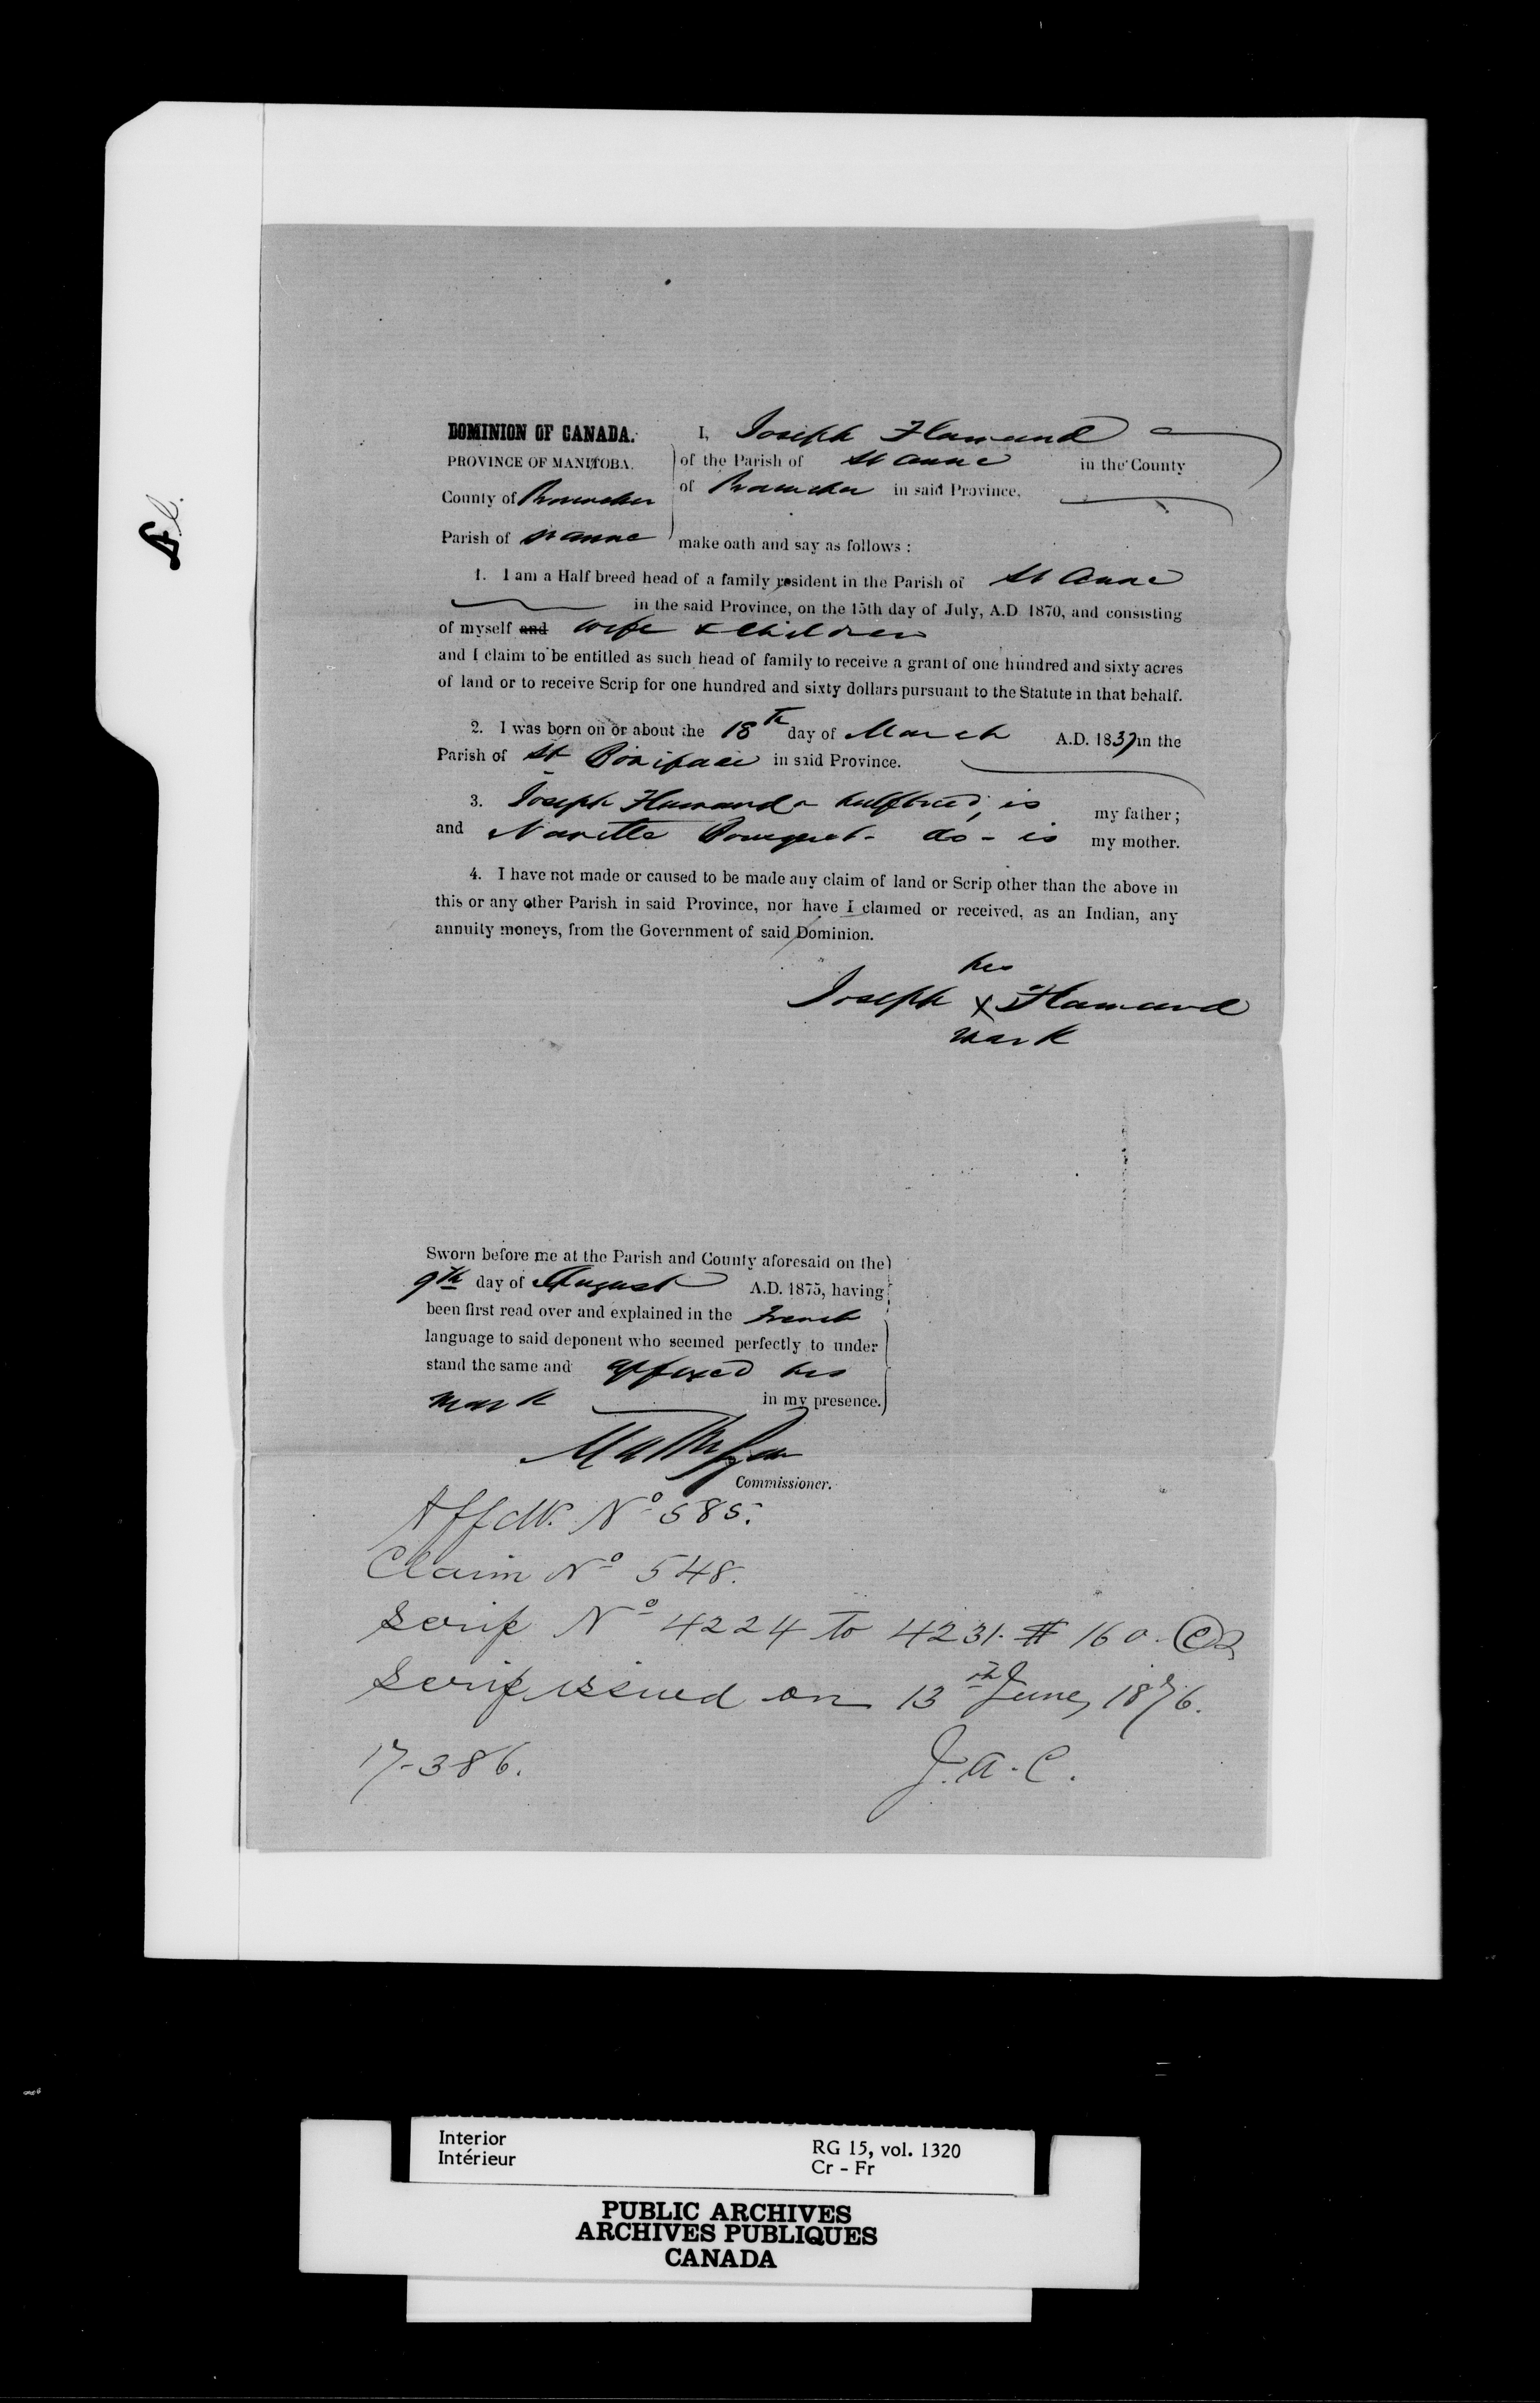 Fl.
DOMINION OF CANADA.
PROVINCE OF MANITOBA.
County of Provencher
Parish of St Anne
I, Joseph Flamand
of the Parish of St Anne in the County
of Provencher in said Province,
make oath and say as follows :
1. I am a Half breed head of a family resident in the Parish of St Anne
in the said Province, on the 15th day of July, A.D 1870, and consisting
of myself and wife & children
and I claim to be entitled as such head of family to receive a grant of one hundred and sixty acres
of land or to receive Scrip for one hundred and sixty dollars pursuant to the Statute in that behalf.
2. I was born on or about the 18th day of March A.D. 1837 in the
Parish of St Boniface in said Province.
3. Joseph Flamand a halfbreed, is my father ;
and Narette - do - is my mother.
4. I have not made or caused to be made any claim of land or Scrip other than the above in
this or any other Parish in said Province, nor have I claimed or received, as an Indian, any
annuity moneys, from the Government of said Dominion.
his
Joseph X Flamand
mark
Sworn before me at the Parish and County aforesaid on the
9th day of August A.D. 1875, having
been first read over and explained in the French
language to said deponent who seemed perfectly to under
stand the same and affixed his
mark in my presence.
Commissioner.
Affdt. No 585.
Claim No 548.
Scrip No 4224 to 4231. $ 160.
Scrip issued on 13th June, 1876.
17-386.
J.A.C.
Interior
Intérieur
RG 15, vol. 1320
Cr - Fr
PUBLIC ARCHIVES
ARCHIVES PUBLIQUES
CANADA